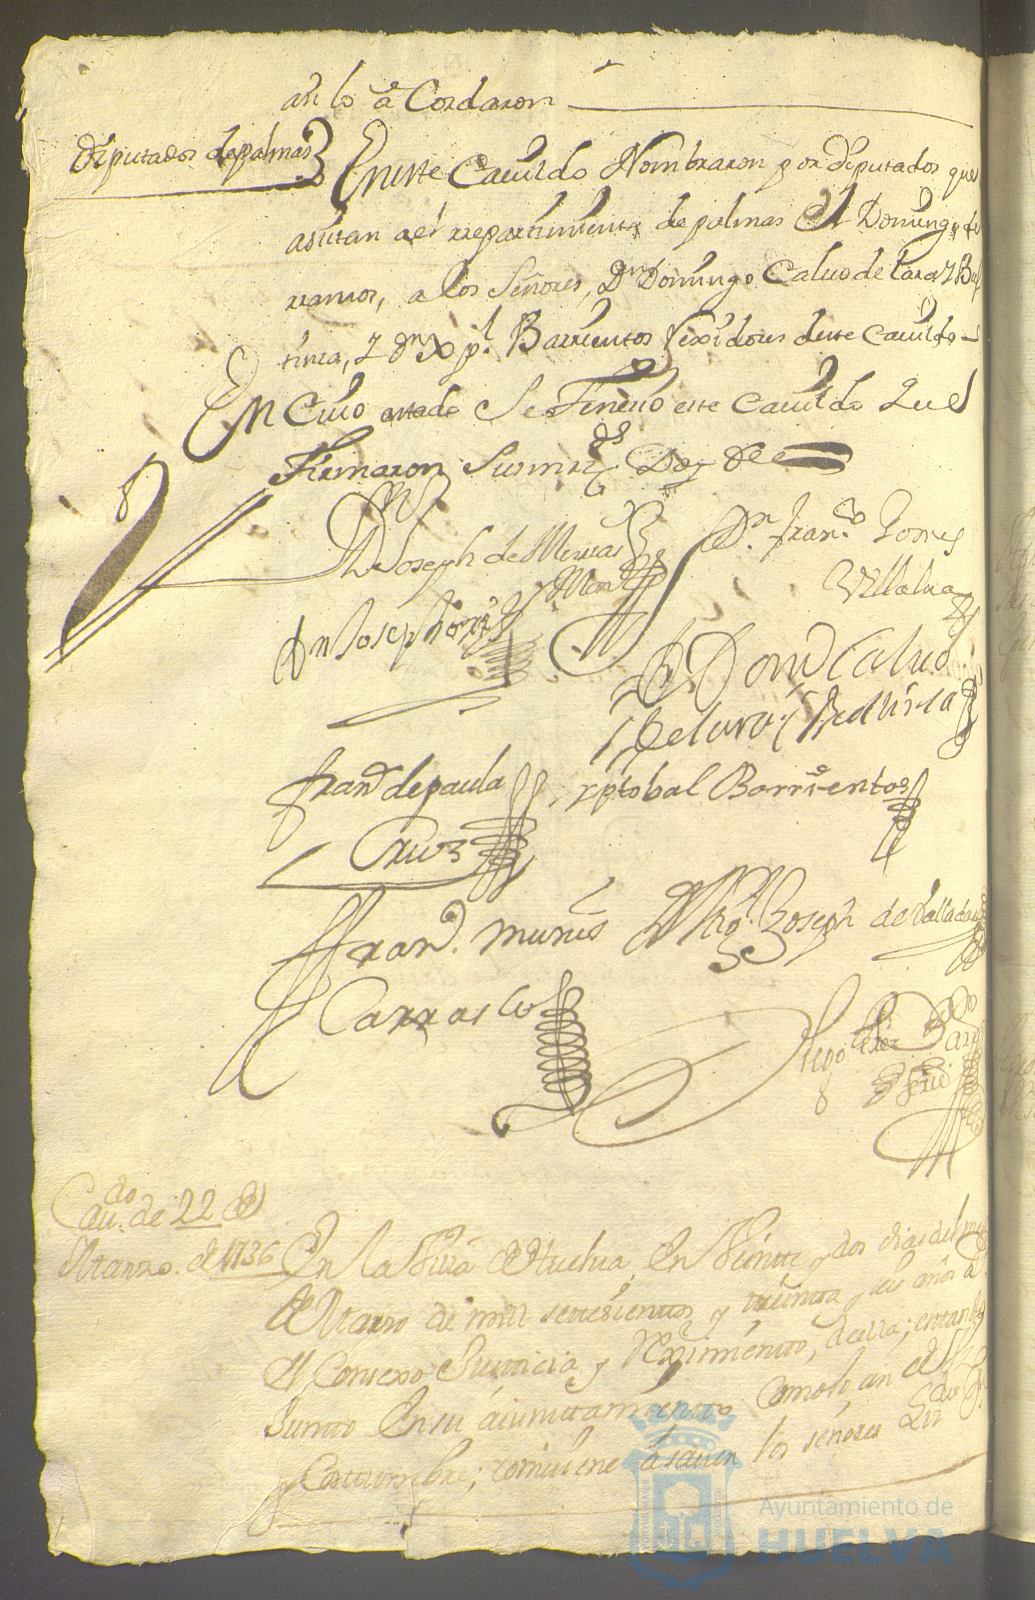 asi lo acordaron
Diputados de palmas
En este Cavildo Nombraron por diputados que
asistan a el rrepartimiento de palmas el Domingo de
rramos, a los Señores, Dn Domingo Calvo de Lara y Bel
tima, y dn Xpl. Barrientos Rexidores deste Cavildo
En Cuio estado Se Fenecio este Cavildo y lo
Firmaron Sus mrds Doy fee
Dn Joseph de
Dn Franco Gomes
Villalva
Dn Joseph
Dn Domo Calvo
de Lara y
Frano de paula
Cruz
xptobal Barrientos
Frano. munis
Carrasco
Joseph de Valladares
Diego
Cavdo de 22 de
Marzo de 1736
En la Villa de Huelva En Veinte y dos dias del mes
de Marzo de mill settesientos y treinta y seis años
el Consexo Justicia y Reximiento, de ella; estando
Junto En su aiuntamiento Como lo an de
y Costumbre; combiene a saver los señores Lizdo Dn
Ayuntamiento de
HUELVA